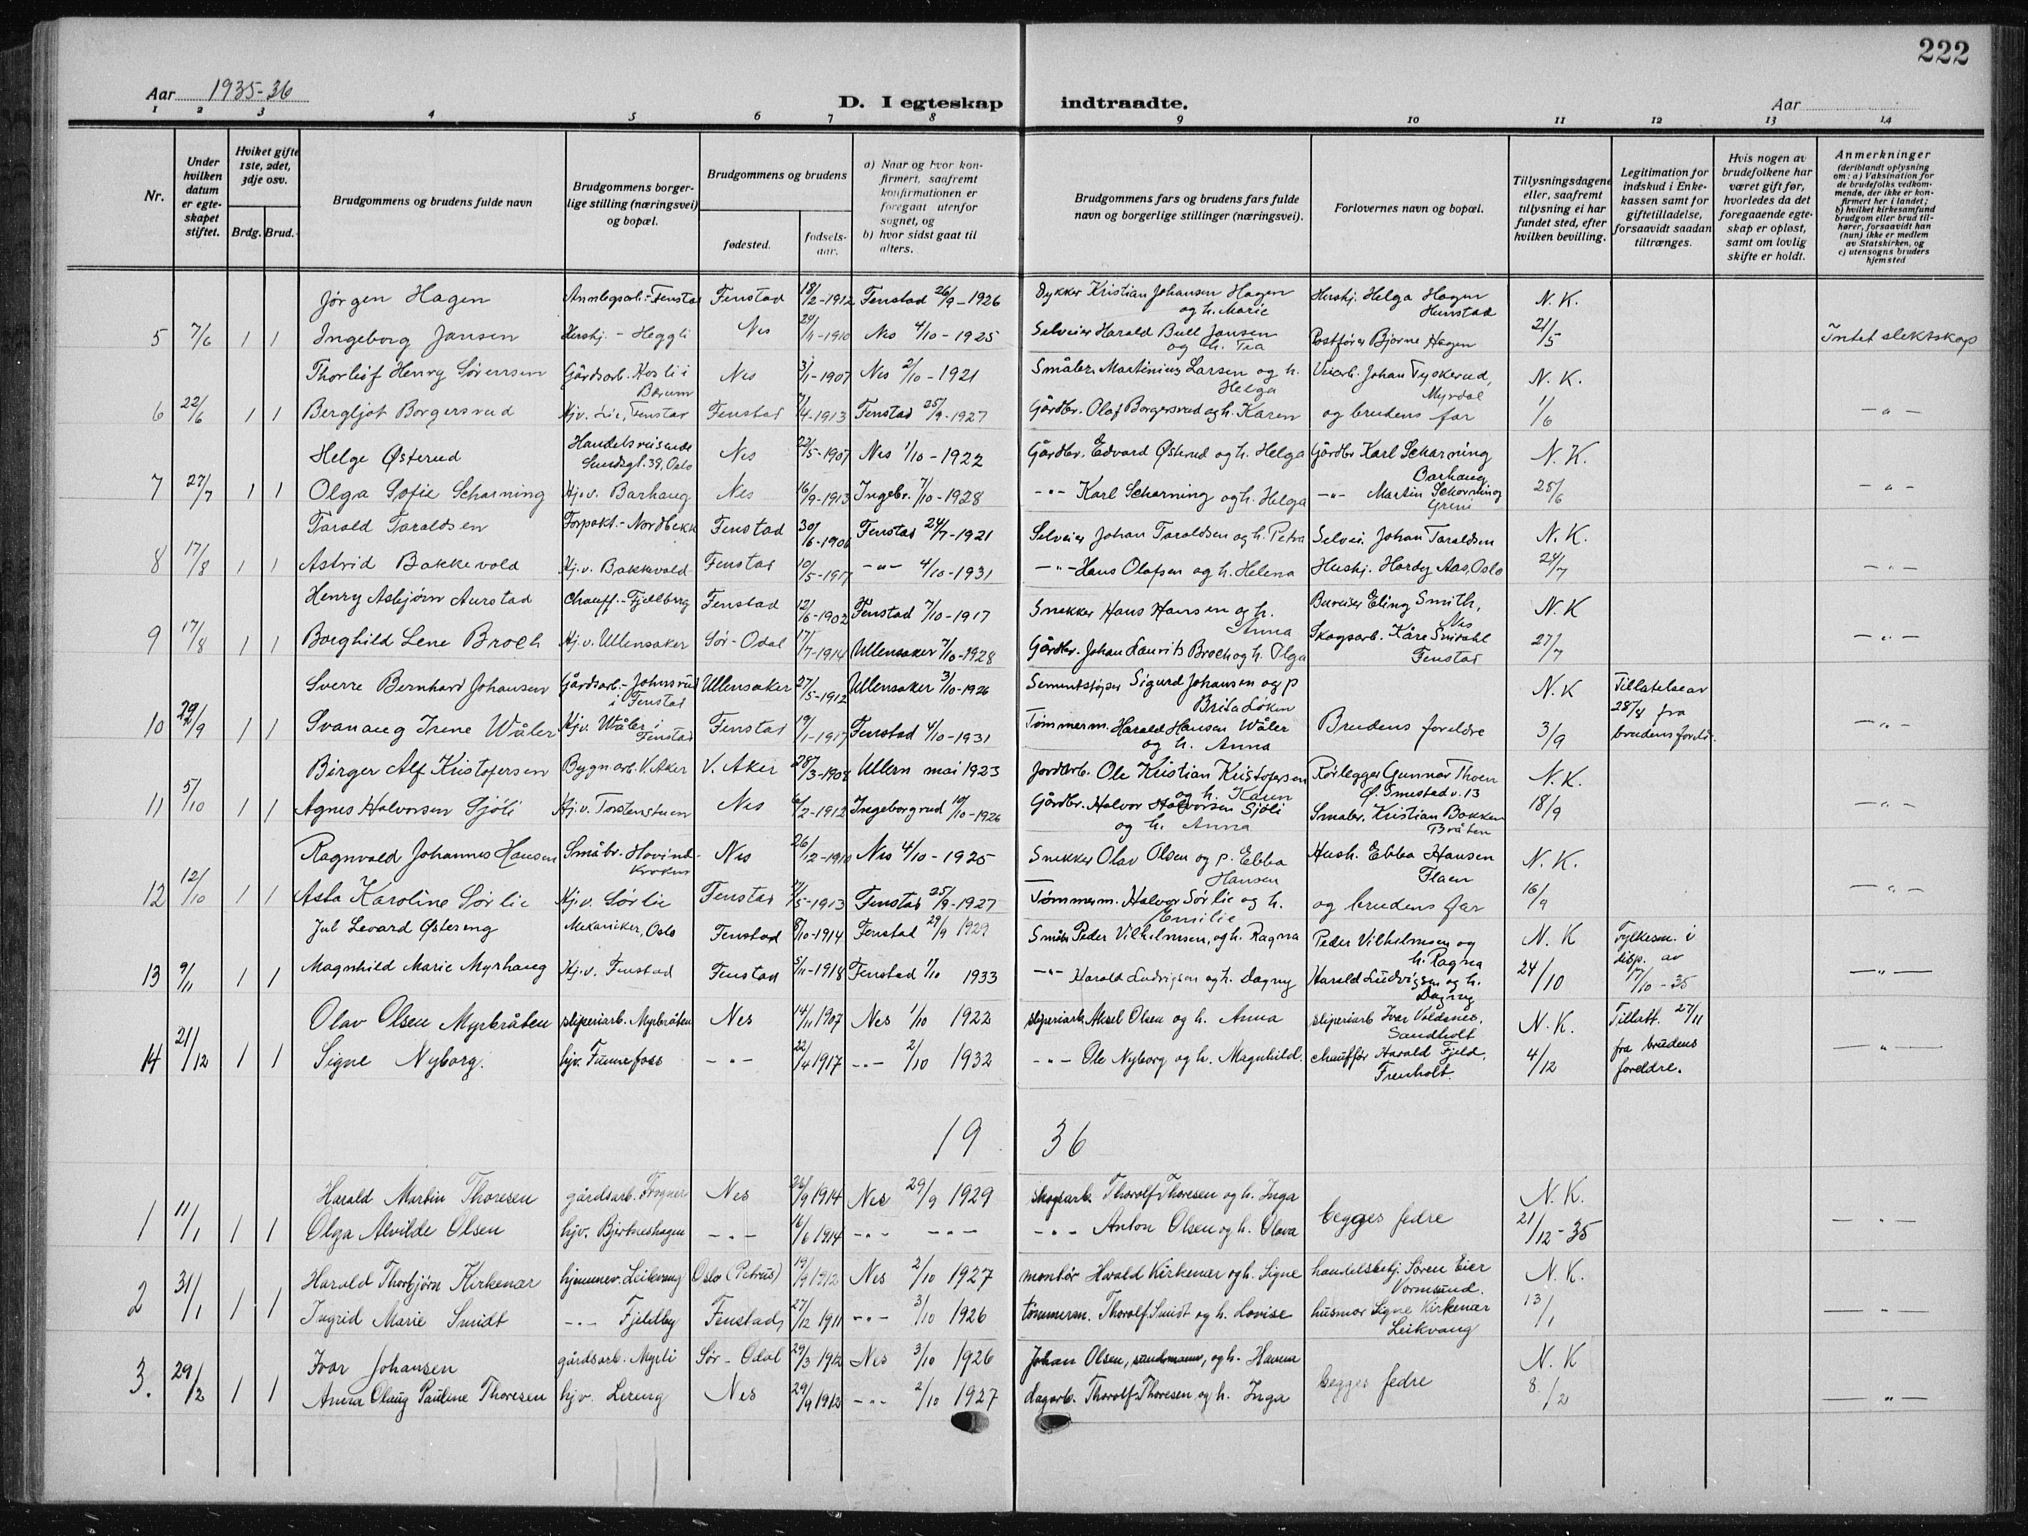 222
Aar 1935-36
D. I egteskap
indtraadte.
Aar
1 2 3 4 5 6 7 8 9 10 11 12 13 14
Nr.
Under hvilken datum er egteskapet stiftet.
Hviket gifte 1ste, 2det, 3dje osv.
Brdg. Brud.
Brudgommens og brudens fulde navn
Brudgommens borgerlige stilling (næringsvei) og bopæl.
Brudgommens og brudens
fødested.
fødselsaar.
a) Naar og hvor konfirmert, saafremt konfirmationen er foregaat utenfor sognet, og
b) hvor sidst gaat til alters.
Brudgommens fars og brudens fars fulde navn og borgerlige stillinger (næringsvei).
Forlovernes navn og bopæl.
Tillysningsdagene eller, saafremt tillysning ei har fundet sted, efter hvilken bevilling.
Legitimation for indskud i Enkekassen samt for giftetilladelse, forsaavidt saadan tiltrænges.
Hvis nogen av brudefolkene har været gift før, hvorledes da det foregaaende egteskap er opløst, samt om lovlig skifte er holdt.
Anmerkninger (deriblandt oplysning om: a) Vaksination for de brudefolks vedkommende, der ikke er konfirmert her i landet; b) hvilket kirkesamfund brudgom eller brud tilhører, forsaavidt han (hun) ikke er medlem av Statskirken, og c) utensogns bruders hjemsted
Jørgen Hagen Anlegsarb.-Fenstad Fenstad 18/2-1912 Fenstad 26/9-1926 Dykker Kristian Johansen Hagen og h. Marie Hushj. Helga Hagen Hunstad N. K.
5 7/6 1 1 Ingeborg Jansen Hushj. - Heggli Nes 24/11-1910 Nes 4/10-1925 Selveier Harald Bull Jansen og h. Tea Postfører Bjarne Hagen 21/5 Intet slektskap
Thorleif Henry Sørensen Gårdsarb. Hosli i Bærum Nes 3/1-1907 Nes 2/10-1921 Småbr. Martinius Larsen og h. Helga Johan Tyskerud, Myrdal N. K.
6 22/6 1 1 Bergljot Borgersrud Hjv. Lie, Fenstad Fenstad 7/4-1913 Fenstad 25/9-1927 Gårdbr. Olaf Borgersrud og h. Karen og brudens far 1/6 -"-
Helge Østerud Handelsreisende 39, Oslo Nes 22/5-1907 Nes 1/10-1922 Gårdbr. Edvard Østerud og h. Helga Gårdbr Karl Scharning Barhaug N. K.
7 27/7 1 1 Olga Sofie Scharning Hj.v. Barhaug Nes 16/9-1913 Ingebr. 7/10-1928 -"- Karl Scharning og h. Helga -"- Martin Scharning Greni 28/6 -"-
Tarald Taraldsen Forpakt.-Nordbekk Fenstad 30/6-1906 Fenstad 24/7-1921 Selveier Johan Taraldsen og h. Petra Selvei. Johan Taraldsen N. K.
8 17/8 1 1 Astrid Bakkevold Hj.v. Bakkvold Fenstad 10/5-1917 -"- 4/10-1931 -"- Hans Olafsen og h. Helena Hushj. Hardy Aas, Oslo 24/7 -"-
Henry Asbjørn Aurstad Chauff.-Fjellberg Fenstad 12/6-1902 Fenstad 7/10-1917 Snekker Hans Hansen og h. Anna Eling Smith, Nes N. K
9 17/8 1 1 Borghild Lene Broch Hj.v. Ullensaker Sør-Odal 17/7-1914 Ullensaker 7/10-1928 Gårdbr. Johan Laurits Broch og h. Olga Skogsarb. Kåre Fenstad 27/7 -"-
Sverre Bernhard Johansen Gårdsarb.-Johnsrud i Fenstad Ullensaker 27/5-1912 Ullensaker 3/10-1926 Sementstøper Sigurd Johansen og p Brita Løken N. K Tillatelse av
10 29/9 1 1 Svanaug Irene Wåler Hjv. Wåler i Fenstad Fenstad 19/1-1917 Fenstad 4/10-1931 Tømmerm. Harald Hansen Wåler og h. Anna Brudens foreldre 3/9 28/8 fra brudens foreld. -"-
Birger Alf Kristofersen Bygn.arb. V. Aker V. Aker 28/3-1908 Ullern mai 1923 Jordarb. Ole Kristian Kristofersen og h. Karen Rørlegger Gunnar Thoen Ø. Smestad v. 13 N. K.
11 5/10 1 1 Agnes Halvorsen Sjøli Hj.v. Torstenstuen Nes 6/2-1912 Ingeborgrud 10/10-1926 Gårdbr. Halvor Halvorsen Sjøli og h. Anna Småbr. Kristian Bakken Bråten 18/9 -"-
Ragnvald Johannes Hansen Småbr. Hovind-Kroken Nes 26/12-1910 Nes 4/10-1925 Snekker Olav Olsen og p. Ebba Hansen Hush. Ebba Hansen Flaen N. K.
12 12/10 1 1 Asta Karoline Sørlie Hjv. Sørlie Fenstad 7/5-1913 Fenstad 25/9-1927 Tømmerm. Halvor Sørlie og h. Emilie og brudens far 16/9 -"-
Jul Levard Østereng Mekaniker, Oslo Fenstad 8/10-1914 Fenstad 29/9 1929 Småbr Peder Vilhelmsen, og h. Ragna Peder Vilhelmsen og h. Ragna N. K Fylkesm. i disp. av
13 9/11 1 1 Magnhild Marie Myrhaug Hj.v. Fenstad Fenstad 5/11-1918 Fenstad 1/10 1933 -"- Harald Ludvigsen og h. Dagny Harald Ludvigsen og h. Dagny 24/10 17/10-35 -"-
Olav Olsen Myrbråten sliperiarb. Myrbråten Nes 14/11 1907 Nes 1/10 1922 sliperiarb. Aksel Olsen og h. Anna sliperiarb Ivar Voldsnes, Sandholt N. K. Tillatt. 27/11
14 21/12 1 1 Signe Nyborg. hjv. Funnefoss -"- 22/4 1917 -"- 2/10 1932 -"- Ole Nyborg og h. Magnhild. chauffør Harald Fjeld, Frenholt. 4/12 fra brudens foreldre. -"-
19 36
Harald Martin Thoresen gårdsarb. Frogner Nes 26/9 1914 Nes 29/9 1929 skogsarb. Thorolf Thoresen og h. Inga N. K.
1 11/1 1 1 Olga Alvilde Olsen hjv. Bjertneshagen -"- 16/6 1914 -"- -"- -"- Anton Olsen og h. Olava begges fedre 21/12-35 -"-
Harald Thorbjørn Kirkenær Leikvang Oslo (Petrus) 19/9 1912 Nes 2/10 1927 montør Harald Kirkenær og h. Signe handelsbetj. Søren Eier Vormsund. N. K.
2 31/1 1 1 Ingrid Marie Smidt -"- Fjellby Fenstad 27/12 1911 -"- 3/10 1926 tømmerm. Thorolf Smidt og h. Lovise husmor Signe Kirkenær Leikvang 13/1 -"-
Ivar Johansen gårdsarb. Myrli Sør-Odal 29/3 1912 Nes 3/10 1926 Johan Olsen, og h. Hanna N. K
3. 29/2 1 1 Anna Olaug Pauline Thoresen hjv. Lereng Nes 29/9 1912 -"- 2/10 1927 dagarb. Thorolf Thoresen og h. Inga begges fedre 8/2 -"-